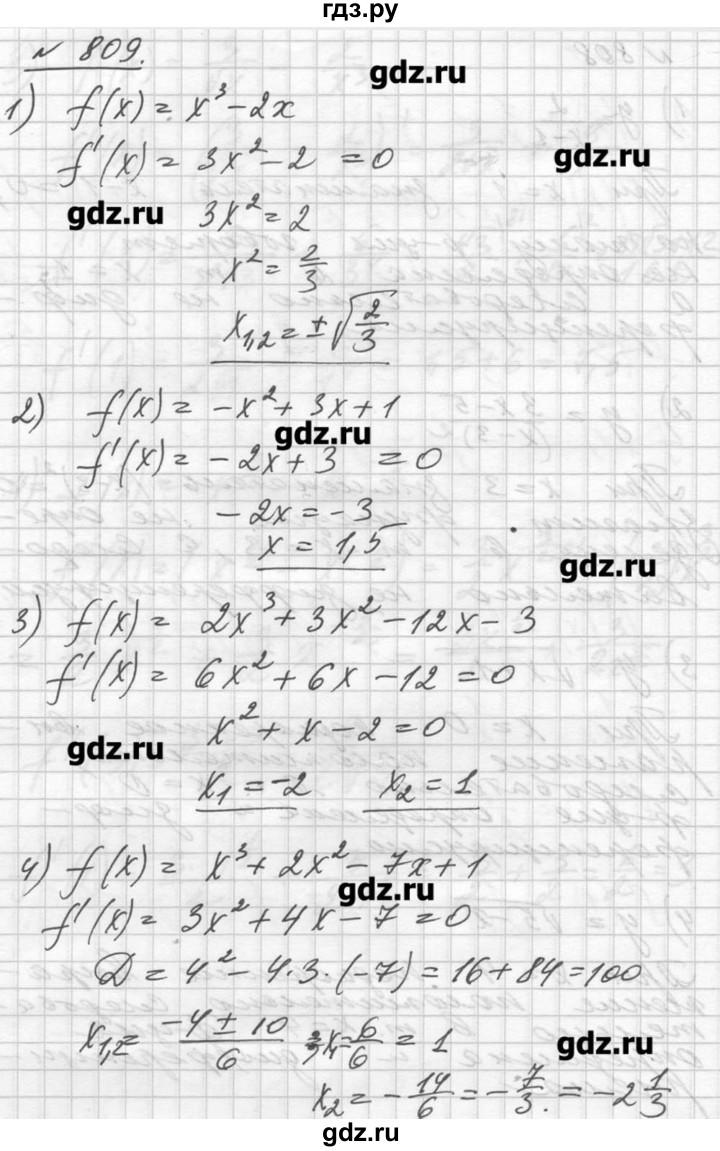 гдз.ру
№ 809.
gdz.ru
1) f(x) = x³ - 2x
f'(x) = 3x² - 2 = 0
gdz.ru
gdz.ru
3x² = 2
x² = 2/3
x₁,₂ = ±√(2/3)
2) f(x) = -x² + 3x + 1
gdz.ru
f'(x) = -2x + 3 = 0
-2x = -3
x = 1,5
gdz.ru
3) f(x) = 2x³ + 3x² - 12x - 3
f'(x) = 6x² + 6x - 12 = 0
x² + x - 2 = 0
gdz.ru
x₁ = -2 x₂ = 1
4) f(x) = x³ + 2x² - 7x + 1
gdz.ru
f'(x) = 3x² + 4x - 7 = 0
Д = 4² - 4·3·(-7) = 16 + 84 = 100
x₁,₂ = (-4 ± 10)/6 x₁ = 6/6 = 1
gdz.ru
x₂ = -14/6 = -7/3 = -2 1/3
gdz.ru